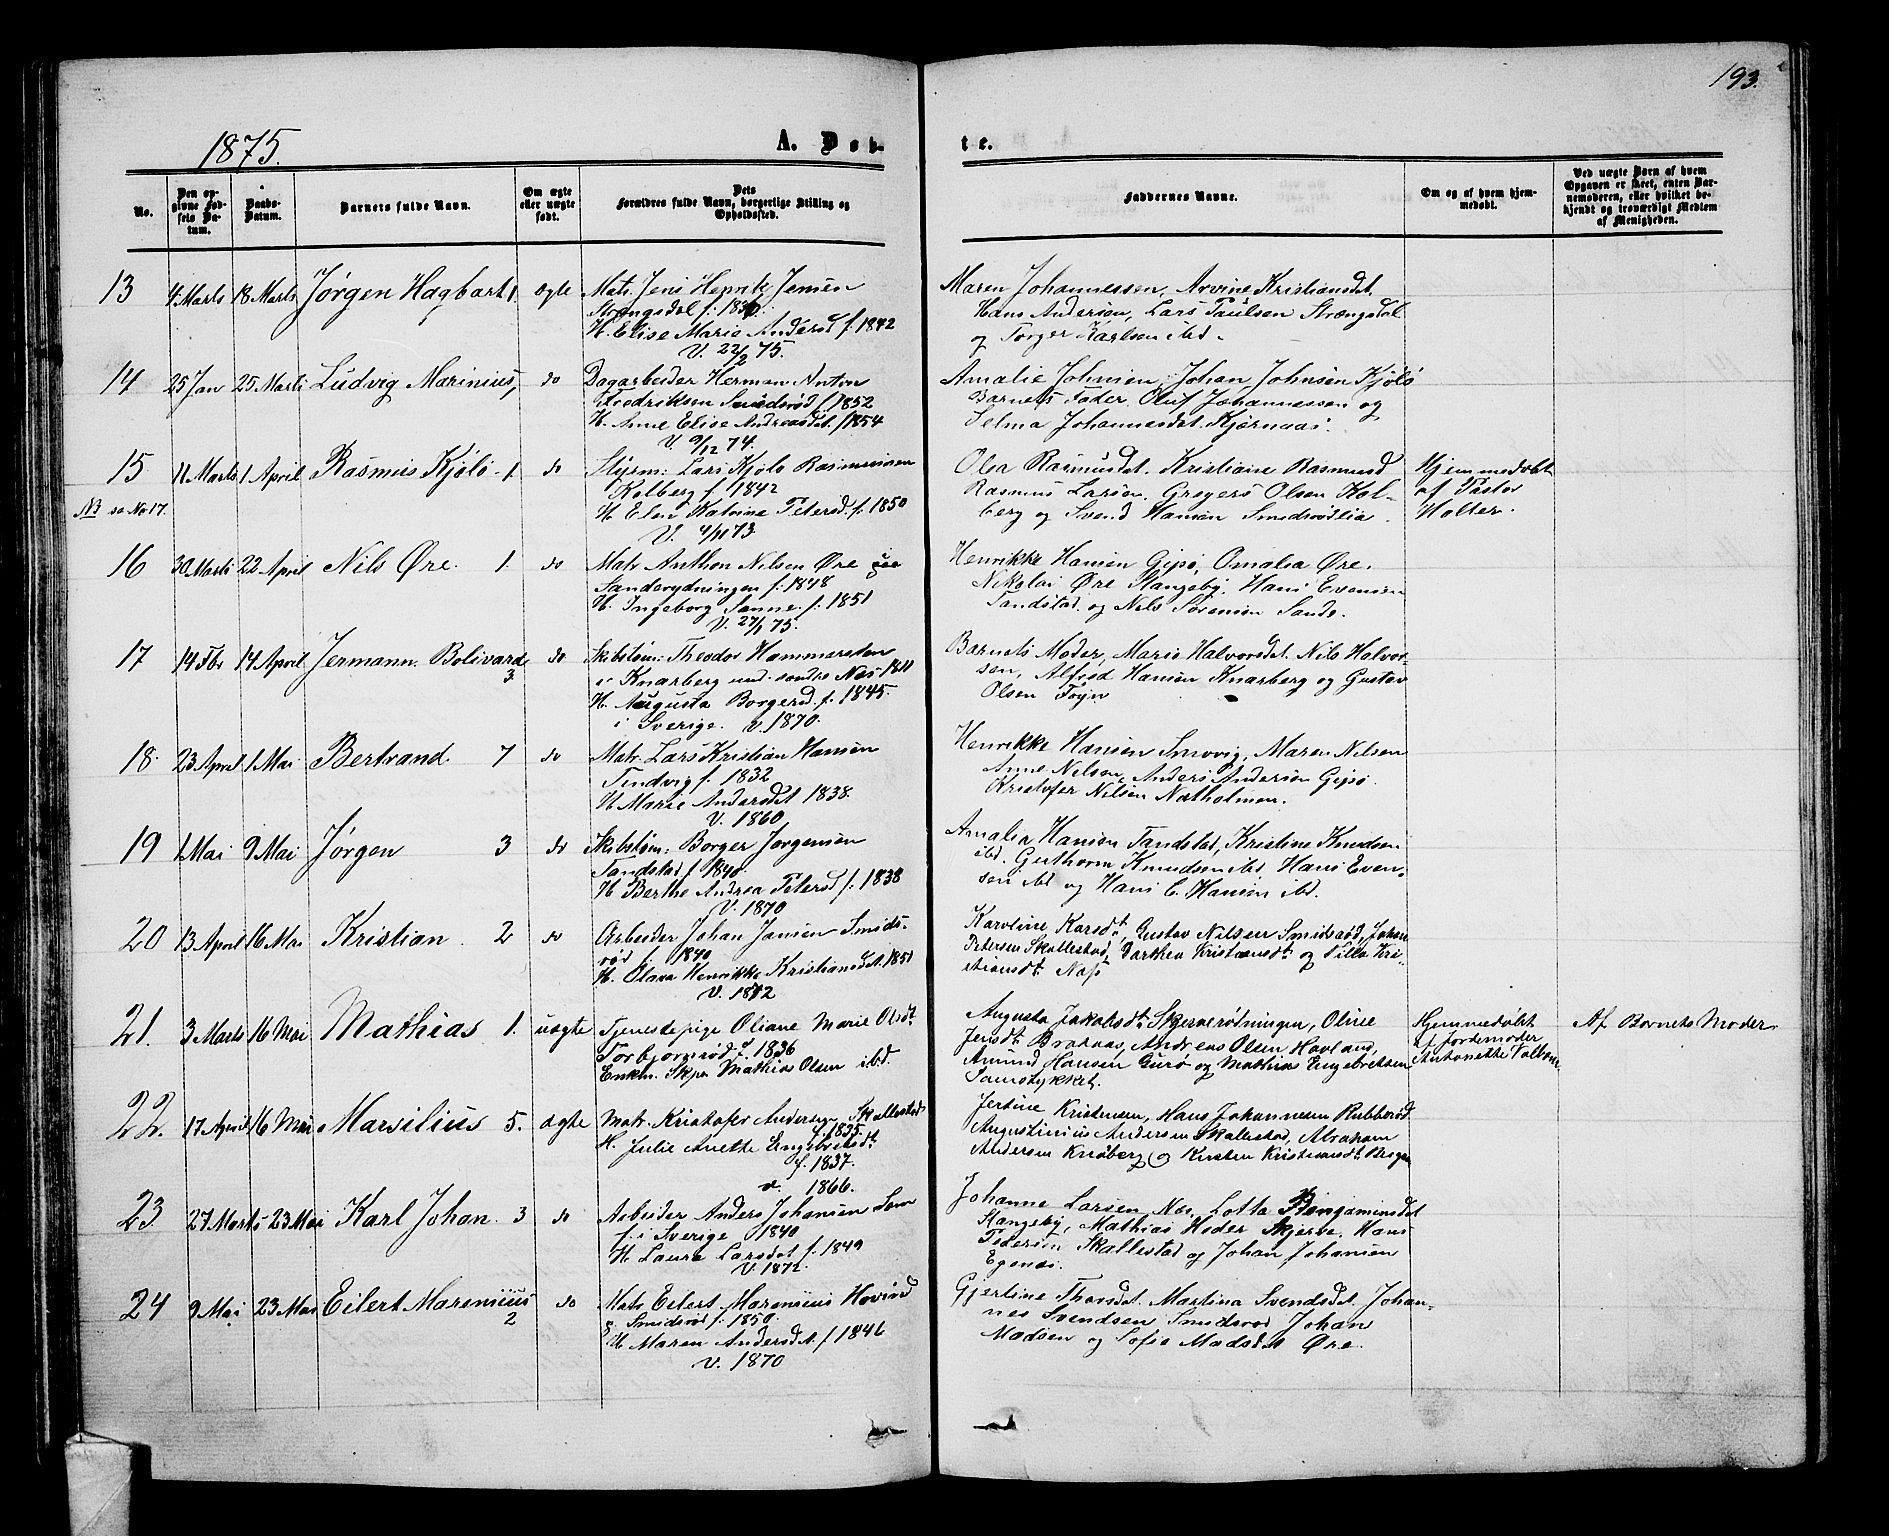 193.
1875.
A. Døb-
te.
No.
Den op-
givne Fød-
sels Da-
tum.
Daabs-
Datum.
Barnets fulde Navn.
Om ægte
eller uægte
født.
Dets
Forældres fulde Navn, borgerlige Stilling og
Opholdssted.
Faddernes Navne.
Om og af hvem hjem-
medøbt.
Ved uægte Børn af hvem
Opgaven er skeet, enten Bar-
nemoderen, eller hvilket be-
kjendt og troværdigt Medlem
af Menigheden.
13 4 Marts 18 Marts Jørgen Hagbart 1. ægte Matr. Jens Henrik Jensen
Strengsdal f.
H. Elise Marie Andersd f. 1842
V. 22/2 75.
Maren Johannessen, Arvine Kristiansdt.
Hans Andersen, Lars Paulsen Strængsdal
og Torger Karlsen ibd.
14 25 Jan 25 Marts Ludvig Marinius, do Dagarbeider Herman Anton
Fredriksen Smidsrød f 1852
H. Anne Elise Andreasdt. f 1854
V 9/12 74.
Amalie Johnsen, Johan Johnsen Kjølø
Barnets Fader. Oluf Johannessen og
Selma Johannesdt. Kjærnaas.
15 11 Marts 1 April Rasmus Kjølø 1. do Styrm: Lars Kjølø Rasmussen
Kolberg f. 1842
H. Elen Katrine Petersd. f. 1850
V. 4/11 73
NB se No 17.
Olea Rasmusdt. Kristiane Rasmusd
Rasmus Larsen, Gregers Olsen Kol-
berg og Svend Hansen Smidsrødlia.
Hjemmedøbt
af Pastor
Holter.
16 30 Marts 22 April Nils Øre. 1. do Matr Anthon Nilsen Øre
Sanderydningen f. 1848
H. Ingeborg Sanne. f. 1851
V. 27/1 75.
Henrikke Hansen Gipø, Omalia Øre.
Nikolai Øre Stangeby, Hans Evensen
Tandstad. og Nils Sørensen Sande.
17 14 Fbr 14 April Jermann Bolivard 3. do Skibstøm: Theodor Hammersten
i Knarberg und. søndre Nes 1841
H. Augusta Borgersd. f. 1845.
i Sverige. v. 1870.
Barnets Moder, Marie Halvorsdt. Nils Halvor-
sen, Alfred Hansen Knarberg og Gustav
Olsen Føyn
18. 23 April 1 Mai Bertrand. 7 do Matr. Lars Kristian Hansen
Tindvig f. 1832
H Marie Andersdt 1838.
V. 1860
Henrikke Hansen Smvvig, Maren Nilsen
Anne Nilsen, Anders Andersen Gipø.
Kristofer Nilsen Natholmen.
19 1 Mai 9 Mai Jørgen 3 do Skibstøm: Borger Jørgensen
Tandstad f. 1840.
H Berthe Andrea Petersd f. 1838
V. 1870
Amalia Hansen Tandstad, Kristine Knudsen
ibd. Guthorm Knudsen ibd, Hans Even-
sen ibd og Hans C. Hansen ibd.
20 13 April 16 Mai Kristian. 2 do Arbeider Johan Jansen Smids-
rød f. 1840
H. Olava Henrikke Kristiansdt. 1851
V. 1872
Karoline Karsdt, Gustav Nilsen Smidsrød, Johan
Petersen Skallestad, Dorthea Kristiansdt og Tilla Kri-
stiansdt Næs
21. 3 Marts 16 Mai Mathias 1. uægte Tjenestepige Oliane Marie Olsdt.
Torbjørnsrød f. 1836
Enkem. Skpr Mathias Olsen ibd.
Augusta Jakobsdt. Skjerverøtningen, Oline
Jensdt. Brataas, Andreas Olsen Havland,
Amund Hansen Gurø og Mathias Engebretsen
Saugstykket.
Hjemmedøbt
af Jordemoder
Antonette
Af Barnets Moder
22. 17 April 16 Mai Marsilius 5. ægte Matr. Kristofer Andersen Skallestad
f. 1835.
H. Julie Anette Engebretsdt.
f. 1837.
v. 1866.
Jertine Kristensen, Hans Johannesen Rubberød
Augustinius Andersen Skallestad, Abraham
Andersen Knøberg og Kirsten Kristiansdt. Bergan
23 27 Marts 23 Mai Karl Johan. 3 do Arbeider Anders Johansen Sem
f. i Sverige 1840
H. Laura Larsdt f. 1849
V. 1872.
Johanne Larsen, Nes, Lotta Bengaminsdt
Stangeby, Mathias Heder Skjerve. Hans
Pedersen Skallestad og Johan Johansen
Egenæs.
24 9 Mai 23 Mai Eilert Marenius 2 do Matr. Eilert Marenius Hovind
Smidsrød f. 1850.
H. Maren Andersdt. f 1846
V. 1870
Gjertine Thorsdt. Martina Svendsdt. Johan-
nes Svendsen Smidsrød Johan
Madsen og Sofie Madsdt Øre.